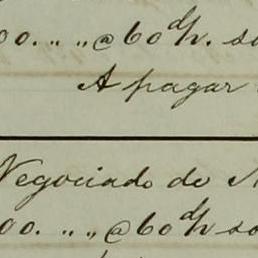 00. „ „ @ 60 d/v. so
A pagar
Negociado do
00. „ „ @ 60 d/v so